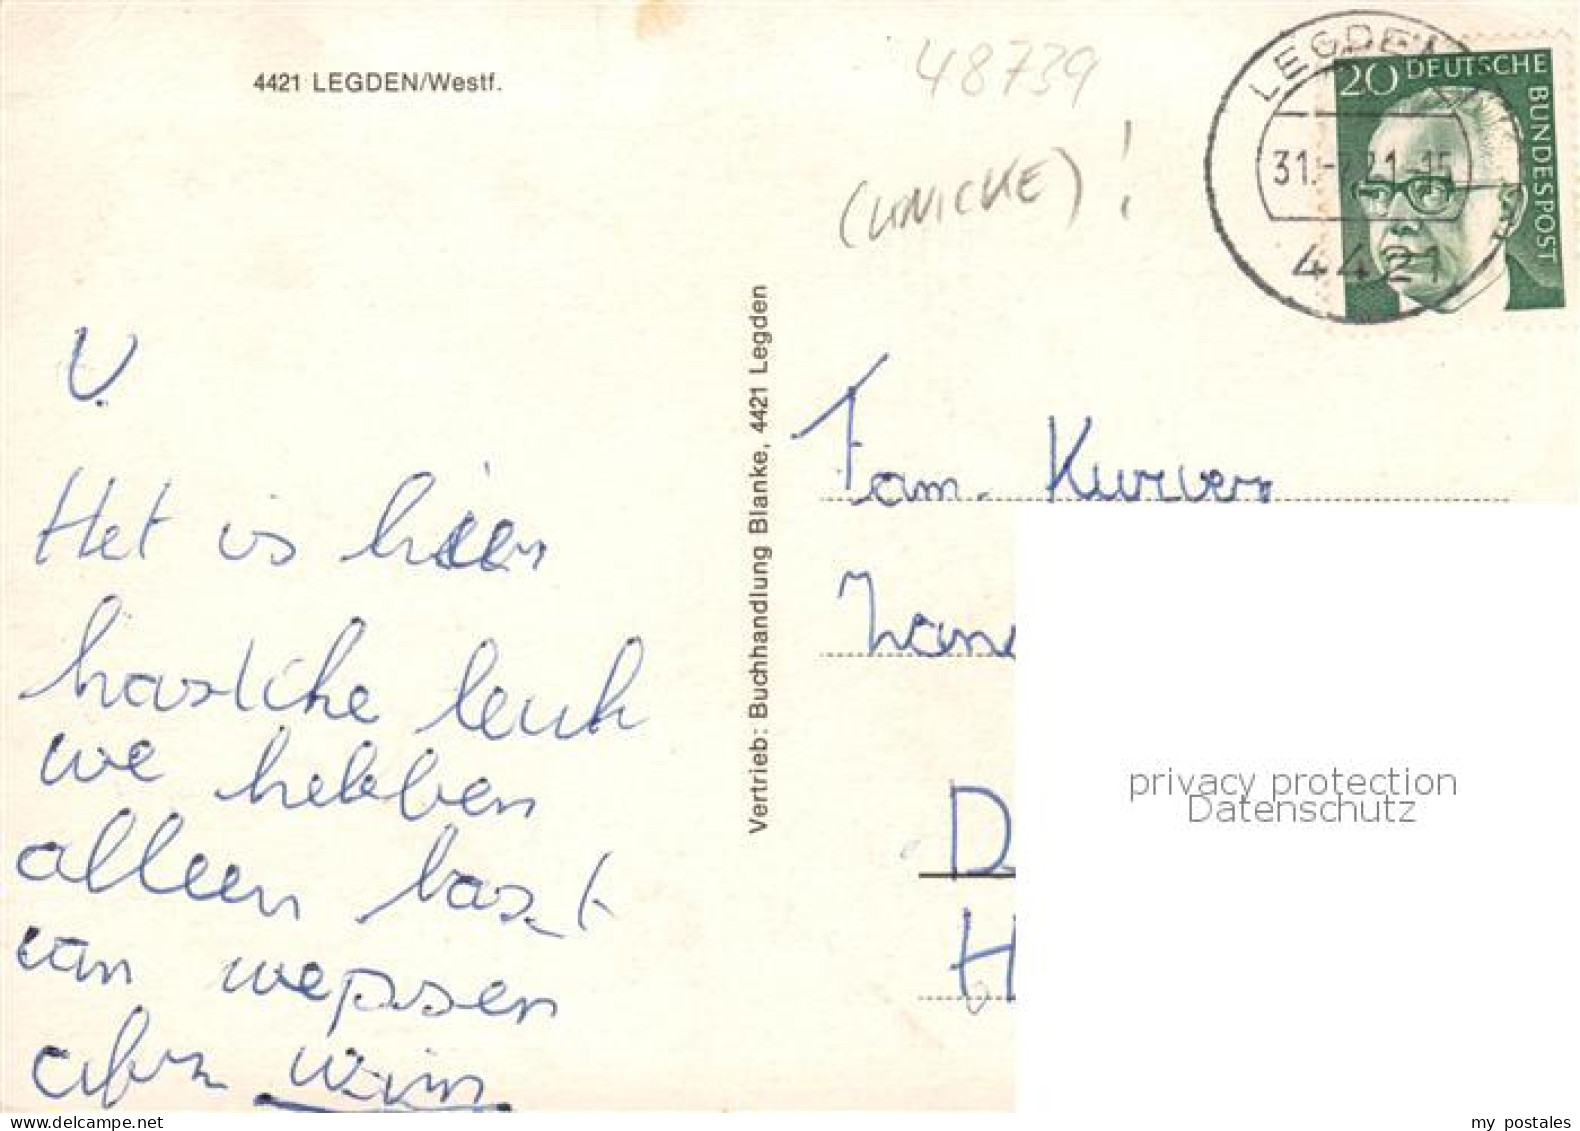 4421 LEGDEN/Westf.
48739
(UNICKE) !
LEGDEN
31.-7.71-15
4421
20 DEUTSCHE
BUNDESPOST
V.
Het is hier
hartstikke leuk
we hebben
alleen last
van wepsen
Wim
Vertrieb: Buchhandlung Blanke, 4421 Legden
Fam. Kurvers
D
H
privacy protection
Datenschutz
www.delcampe.net
my postales